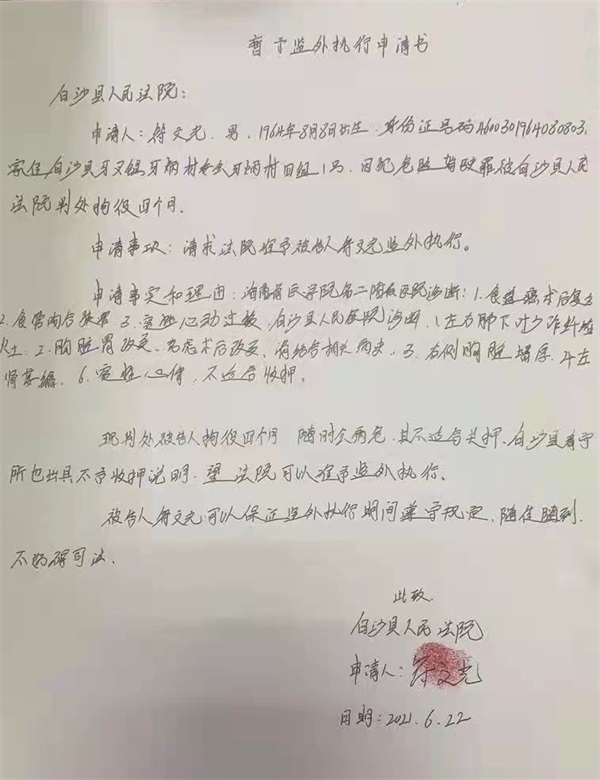 暂予监外执行申请书
白沙县人民法院：
申请人：符文光，男，1964年8月8日出生，身份证号码460030196408080
家住白沙县牙叉镇牙炳村委会牙炳村四组1号，因犯危险驾驶罪被白沙县人民
法院判处拘役四个月。
申请事项：请求法院准予被告人符文光监外执行。
申请事实和理由：海南省医学院第二附属医院诊断：1.食道癌术后复
2.食管内占 3.窦性心动过 白沙县人民医院诊断，1.左右肺下叶少许纤维
灶 2.胸 胃改变，考虑术后改变，请结合相关病史，3.右侧胸膜增厚，4.左
肾萎缩，6.窦性心律，不适合收押。
现判处被告人拘役四个月 随时会病危，其不适合关押，白沙县看守
所也出具不予收押说明，望法院可以准予监外执行。
被告人符文光可以保证监外执行期间遵守规定，随传随到，
不妨碍司法。
此致
白沙县人民法院
申请人：符文光
日期：2021.6.22